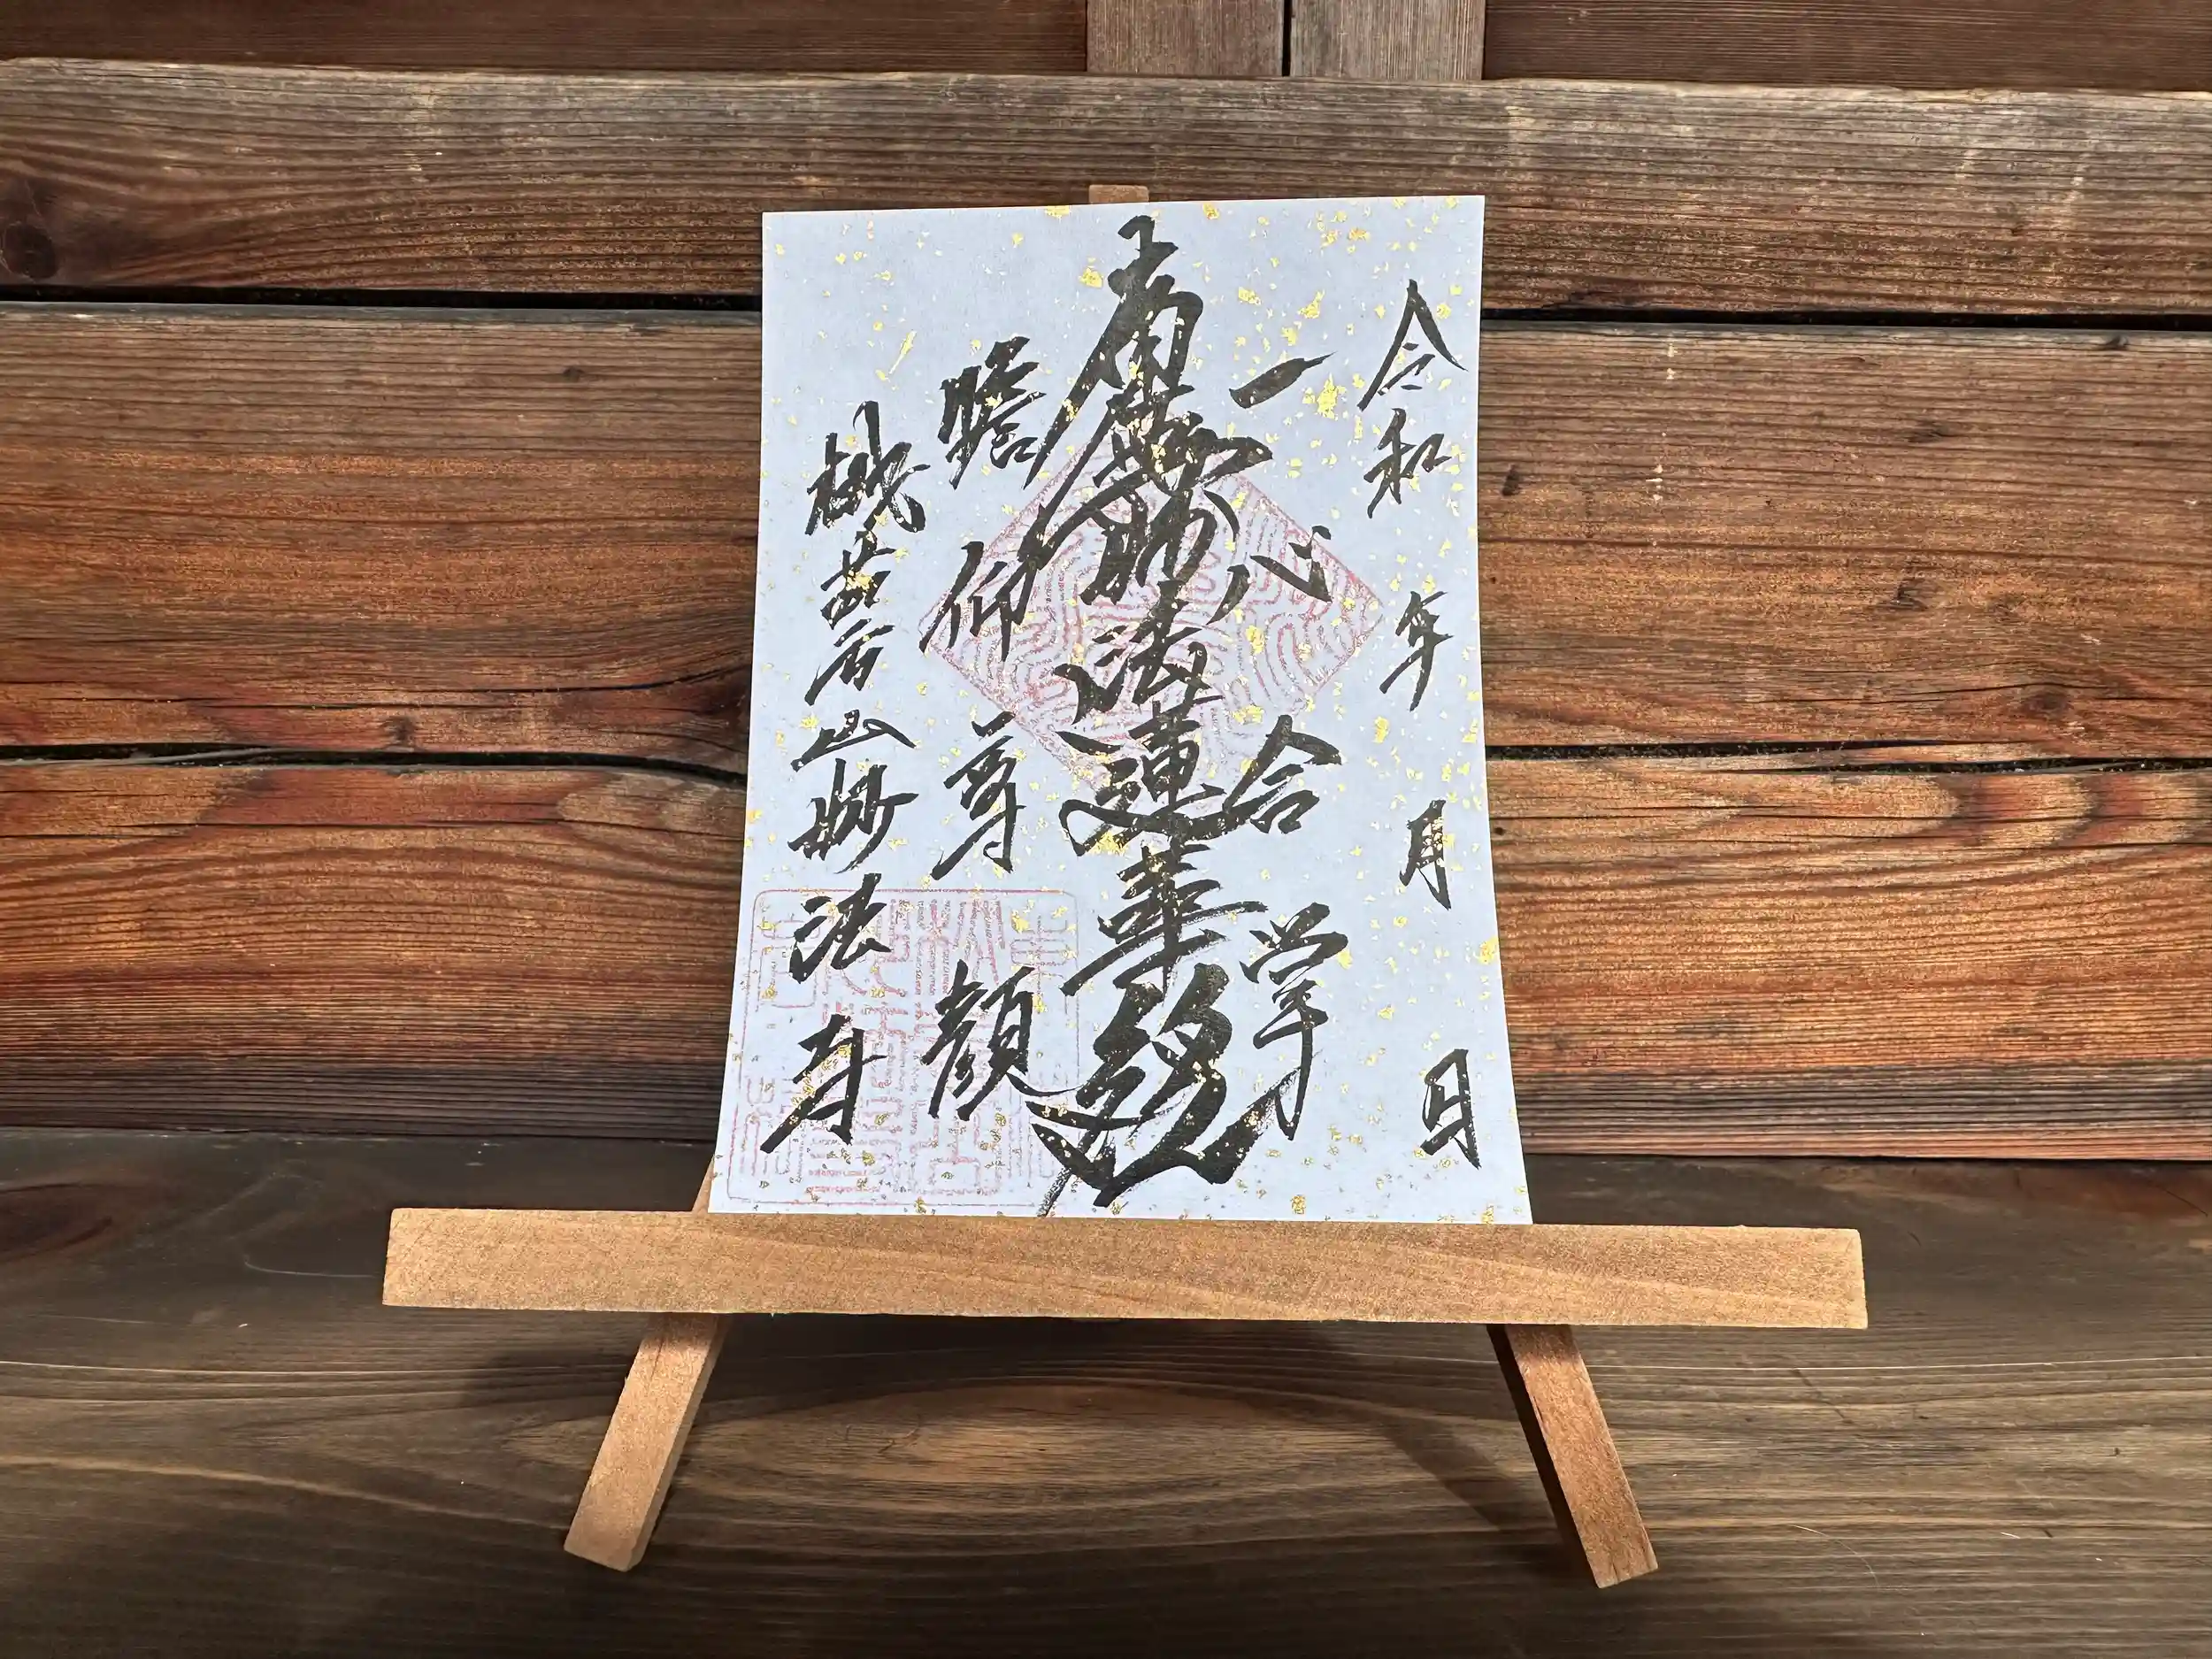 令和 年 月 日
一心合掌
南無妙法蓮華経
瞻仰尊顔
山妙法寺